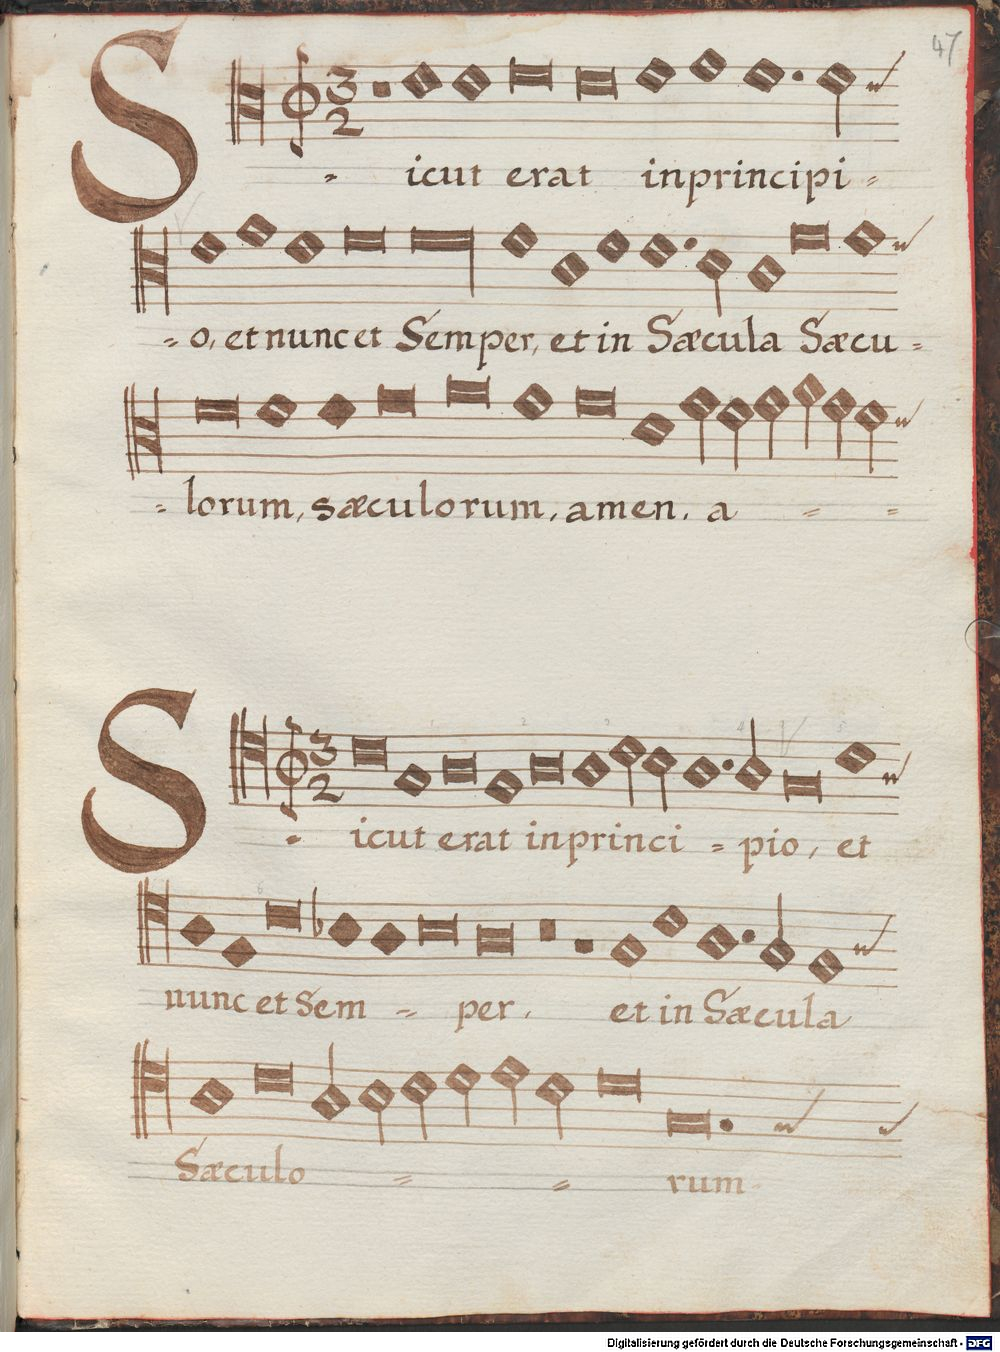 47
3
2
Sicut erat in principi =
= o, et nunc et Semper, et in Sæcula Sæcu =
= lorum, sæculorum, amen, a = =
3
2
Sicut erat in princi = pio, et
nunc et Sem = per, et in Sæcula
Sæculo = = rum
Digitalisierung gefördert durch die Deutsche Forschungsgemeinschaft - DFG